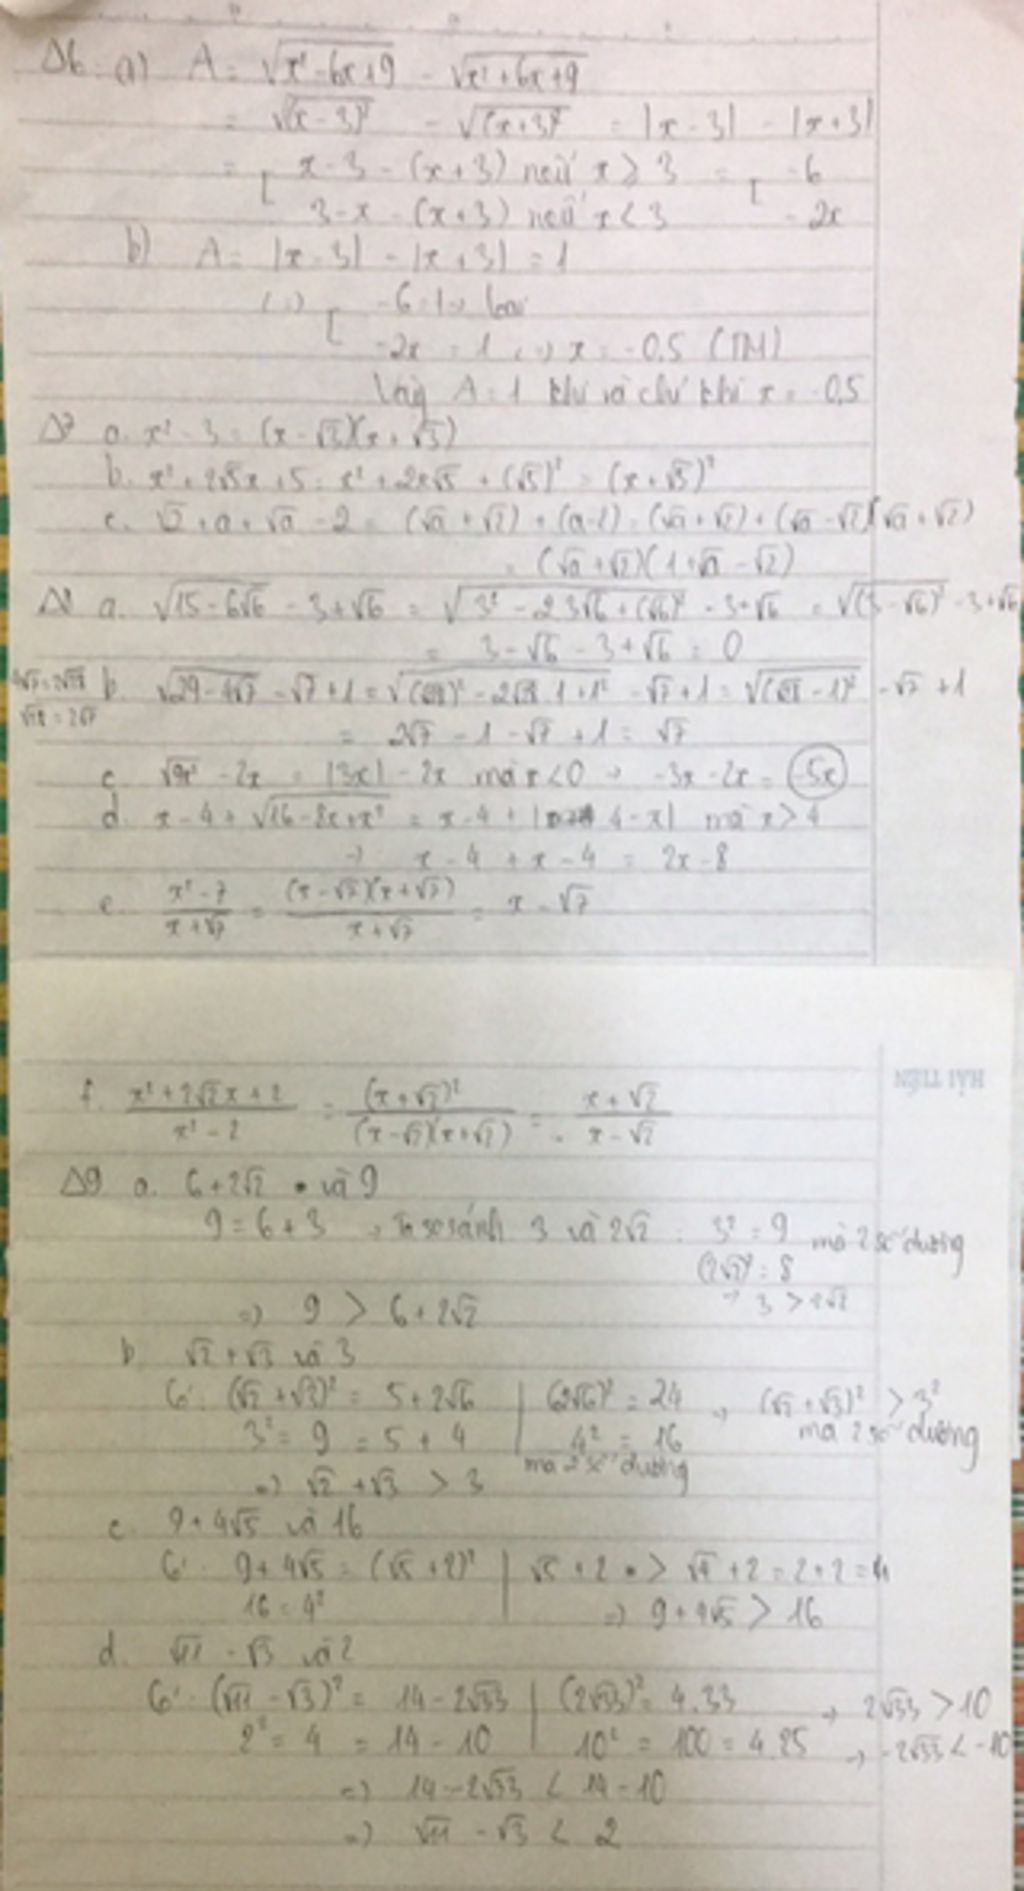 Δ6 a) A = √(x² - 6x + 9) - √(x² + 6x + 9)
= √(x - 3)² - √(x + 3)² = |x - 3| - |x + 3|
= [ x - 3 - (x + 3) nếu x ≥ 3 = [ -6
3 - x - (x + 3) nếu x < 3 - 2x
b) A = |x - 3| - |x + 3| = 1
(=) [ -6 = 1 → loại
-2x = 1 (=) x = -0,5 (TM)
Vậy A = 1 khi và chỉ khi x = -0,5
Δ7 a. x² - 3 = (x - √3)(x + √3)
b. x² + 2√5x + 5 = x² + 2x√5 + (√5)² = (x + √5)²
c. √2 + a + √a - 2 = (√a + √2) + (a - 2) = (√a + √2) + (√a - √2)(√a + √2)
= (√a + √2)(1 + √a - √2)
Δ8 a. √(15 - 6√6) - 3 + √6 = √(3² - 2.3√6 + (√6)²) - 3 + √6 = √(3 - √6)² - 3 + √6
= 3 - √6 - 3 + √6 = 0
b. √(29 - 4√7) - √7 + 1 = √((√28)² - 2√28.1 + 1²) - √7 + 1 = √(√28 - 1)² - √7 + 1
√28 = 2√7
= 2√7 - 1 - √7 + 1 = √7
c. √9x² - 2x = |3x| - 2x mà x < 0 → -3x - 2x = -5x
d. x - 4 + √(16 - 8x + x²) = x - 4 + |4 - x| mà x > 4
→ x - 4 + x - 4 = 2x - 8
e. (x² - 7)/(x + √7) = (x - √7)(x + √7)/(x + √7) = x - √7
HẢI TIẾN
f. (x² + 2√2x + 2)/(x² - 2) = (x + √2)²/((x - √2)(x + √2)) = (x + √2)/(x - √2)
Δ9 a. 6 + 2√2 và 9
9 = 6 + 3 → Ta so sánh 3 và 2√2 : 3² = 9 mà 2 số dương
(2√2)² = 8
→ 3 > 2√2
=) 9 > 6 + 2√2
b. √2 + √3 và 3
Có: (√2 + √3)² = 5 + 2√6 | (2√6)² = 24 → (√2 + √3)² > 3²
3² = 9 = 5 + 4 | 4² = 16 mà 2 số dương
mà 2 số dương
=) √2 + √3 > 3
c. 9 + 4√5 và 16
Có: 9 + 4√5 = (√5 + 2)² | √5 + 2 > √4 + 2 = 2 + 2 = 4
16 = 4² | =) 9 + 4√5 > 16
d. √11 - √3 và 2
Có: (√11 - √3)² = 14 - 2√33 | (2√33)² = 4.33 → 2√33 > 10
2² = 4 = 14 - 10 | 10² = 100 = 4.25 → -2√33 < -10
=) 14 - 2√33 < 14 - 10
=) √11 - √3 < 2